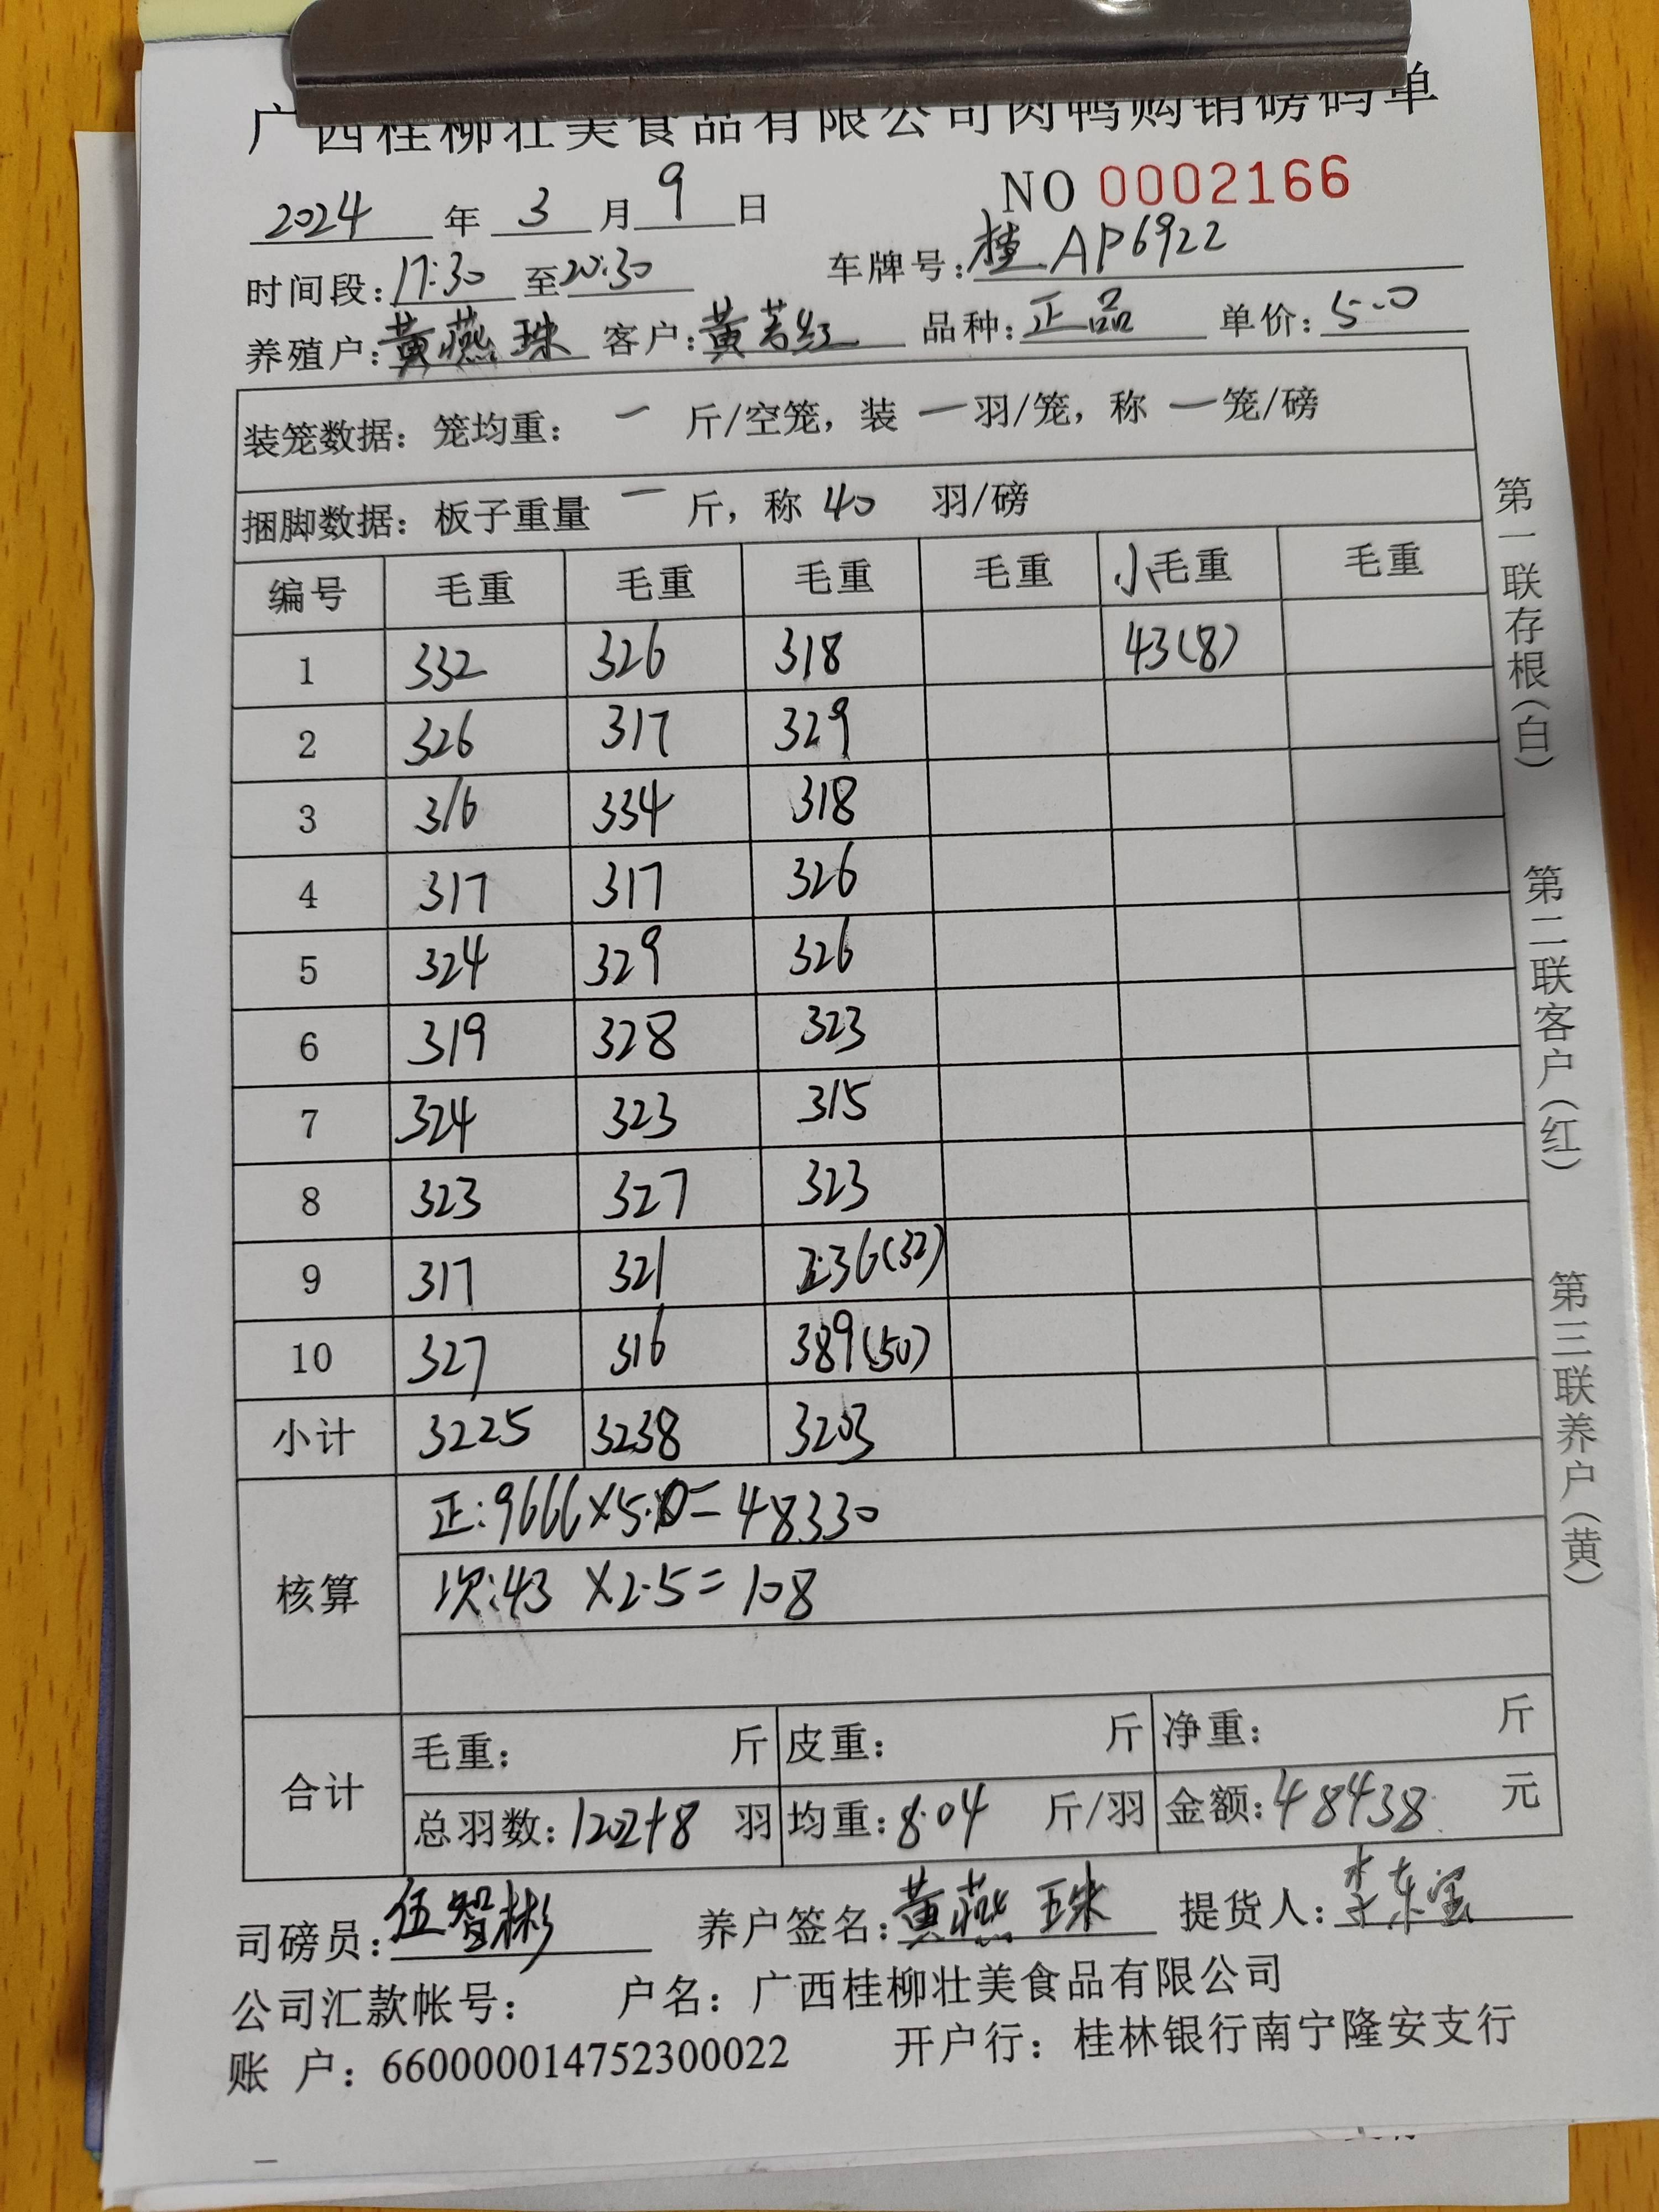 广西桂柳壮美食品有限公司肉鸭购销磅码单
2024 年 3 月 9 日 NO 0002166
时间段:17:30 至20:30 车牌号:桂AP6922
养殖户:黄燕珠 客户:黄芳红 品种:正品 单价:5.0
装笼数据: 笼均重: 一 斤/空笼, 装 一 羽/笼, 称 一 笼/磅
捆脚数据: 板子重量 一 斤, 称 40 羽/磅
编号 毛重 毛重 毛重 毛重 小毛重 毛重
1 332 326 318 43(8)
2 326 317 329
3 316 334 318
4 317 317 326
5 324 329 326
6 319 328 323
7 324 323 315
8 323 327 323
9 317 321 236(32)
10 327 316 389(50)
小计 3225 3238 3203
核算 正:9666×5.0=48330
次:43 ×2.5=108
合计 毛重: 斤 皮重: 斤 净重: 斤
总羽数:1202+8 羽 均重:8.04 斤/羽 金额:48438 元
司磅员:伍智彬 养户签名:黄燕珠 提货人:李东宝
公司汇款帐号: 户名: 广西桂柳壮美食品有限公司
账 户: 660000014752300022 开户行: 桂林银行南宁隆安支行
第一联存根(白) 第二联客户(红) 第三联养户(黄)